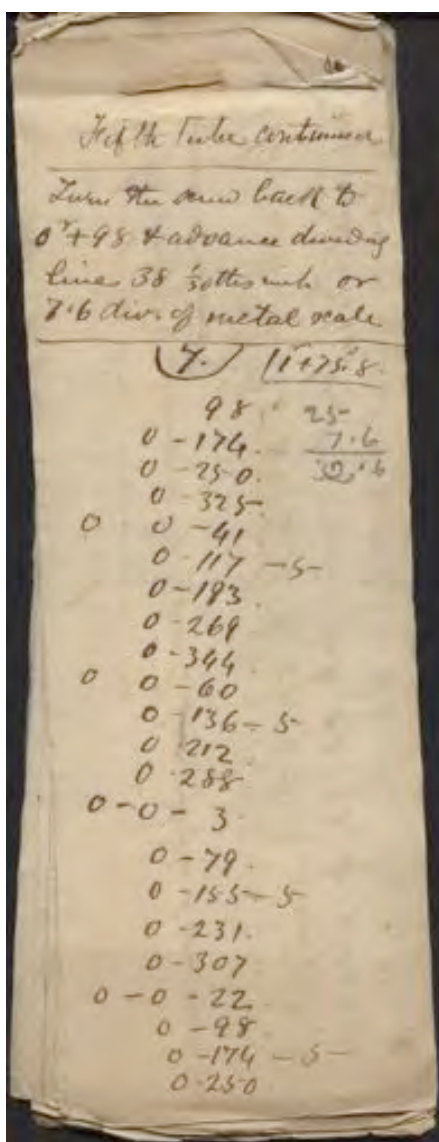 Fifth Tube continued
Turn the screw back to
0ʳ+98 & advance dividing
lines 38 1/50ths inch or
7.6 div. of metal scale
7. 1ʳ+75.8
98 25
0-174. 7.6
0-250. 32.6
0-325.
0 0-41
0-117 -5-
0-193.
0-269
0-344.
0 0-60
0-136-5
0.212
0.288
0-0-3
0-79.
0-155-5
0-231.
0-307
0-0-22
0-98
0-174-5-
0.250